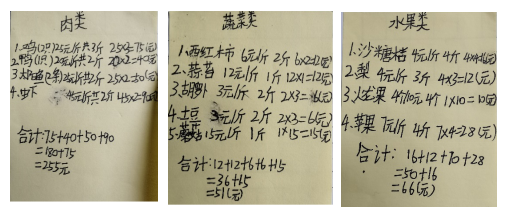 肉类
1.鸡(1只)25元/斤共3斤 25×3=75(元)
2.鸭(1只)20元/斤共2斤 20×2=40(元)
25元/斤共2斤 25×2=50(元)
4.虾 45元/斤共2斤 45×2=90(元)
合计:75+40+50+90
=180+75
=255元
蔬菜类
1.西红柿 6元/斤 2斤 6×2=12(元)
2.蒜苔 12元/斤 1斤 12×1=12(元)
3.胡 3元/斤 2斤 2×3=6(元)
4.土豆 3元/斤 2斤 2×3=6(元)
5.蘑菇15元/斤 1斤 1×15=15(元)
合计:12+12+6+6+15
=36+15
=51(元)
水果类
1.沙糖桔 4元/斤 4斤 4×4=16(元)
2.梨 4元/斤 3斤 4×3=12(元)
3.火龙果 4个10元 4个 1×10=10(元)
4.苹果 7元/斤 4斤 7×4=28(元)
合计: 16+12+10+28
=50+16
=66(元)